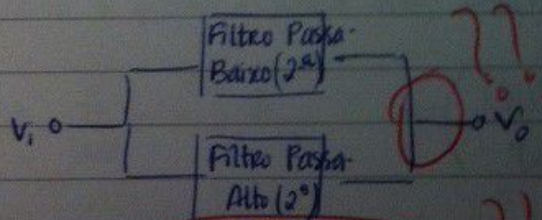 Filtro Passa-
Baixo (2ª)
??
Vi
Vo
Filtro Passa-
Alto (2º)
??